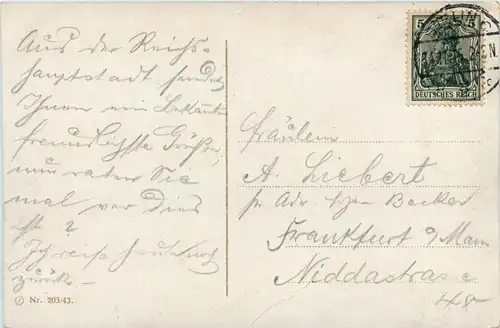 Aus der Reichs-
hauptstadt sendet
Ihnen ein Bekannter
freundlichste Grüße,
nun raten Sie
mal wer dies
ist ?
Ich reise heute noch
zurück. -
Nr. 203/43.
DEUTSCHES REICH
Fräulein
A. Liebert
Becker
Frankfurt a/Main
Niddastrasse
48